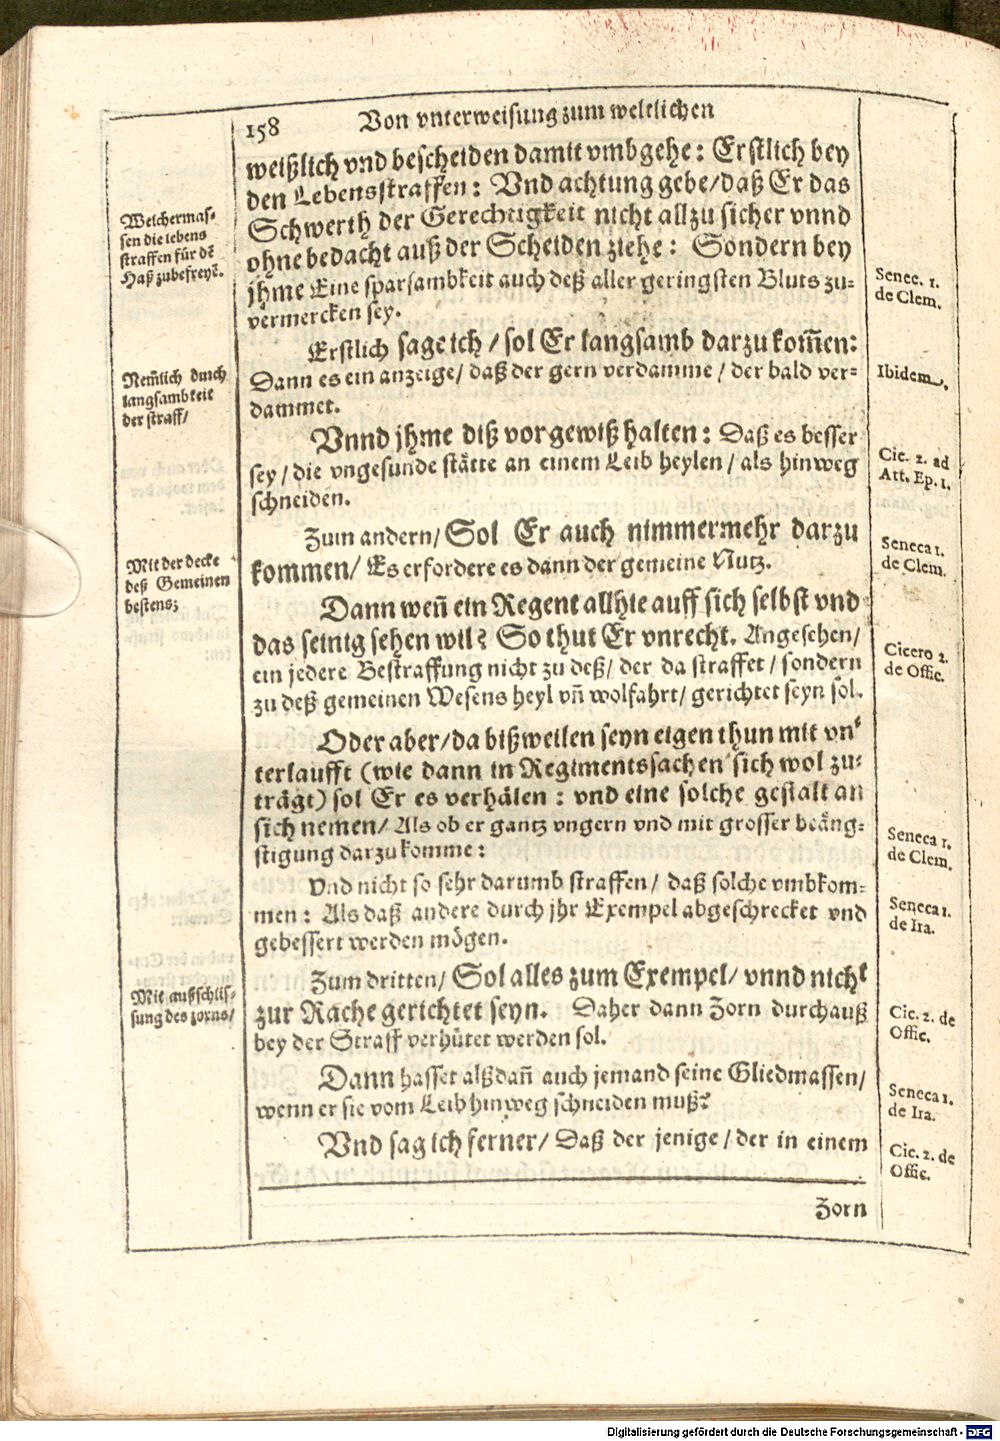 158 Von vnterweisung zum weltlichen
weißlich vnd bescheiden damit vmbgehe: Erstlich bey
den Lebensstraffen: Vnd achtung gebe/daß Er das
Schwerth der Gerechtigkeit nicht allzu sicher vnnd
ohne bedacht auß der Scheiden ziehe: Sondern bey
jhme Eine sparsambkeit auch deß aller geringsten Bluts zu-
vermercken sey.
Erstlich sage ich / sol Er langsamb darzu kom̃en:
Dann es ein anzeige/ daß der gern verdamme / der bald ver-
dammet.
Vnnd jhme diß vor gewiß halten: Daß es besser
sey / die vngesunde stätte an einem Leib heylen / als hinweg
schneiden.
Zum andern/ Sol Er auch nimmermehr darzu
kommen/ Es erfordere es dann der gemeine Nutz.
Dann weñ ein Regent allhie auff sich selbst vnd
das seinig sehen wil? So thut Er vnrecht. Angesehen/
ein jedere Bestraffung nicht zu deß/ der da straffet / sondern
zu deß gemeinen Wesens heyl vñ wolfahrt/ gerichtet seyn sol.
Oder aber/da bißweilen seyn eigen thun mit vn-
terlaufft (wie dann in Regimentssachen sich wol zu-
trägt) sol Er es verhälen: vnd eine solche gestalt an
sich nemen/ Als ob er gantz vngern vnd mit grosser beäng-
stigung darzu komme:
Vnd nicht so sehr darumb straffen/ daß solche vmbkom-
men: Als daß andere durch jhr Exempel abgeschrecket vnd
gebessert werden mögen.
Zum dritten/ Sol alles zum Exempel/ vnnd nicht
zur Rache gerichtet seyn. Daher dann Zorn durchauß
bey der Straff verhütet werden sol.
Dann hasset alßdañ auch jemand seine Gliedmassen/
wenn er sie vom Leib hinweg schneiden muß?
Vnd sag ich ferner/ Daß der jenige / der in einem
Zorn
Welchermas-
sen die lebens
straffen für dẽ
Haß zubefreyẽ.
Nem̃lich durch
langsambkeit
der straff/
Mit der decke
deß Gemeinen
bestens;
Mit außschlis-
sung des zorns/
Senec. 1.
de Clem.
Ibidem.
Cic. 2. ad
Att. Ep. 1.
Seneca 1.
de Clem.
Cicero 2.
de Offic.
Seneca 1.
de Clem.
Seneca 1.
de Ira.
Cic. 2. de
Offic.
Seneca 1.
de Ira.
Cic. 2. de
Offic.
Digitalisierung gefördert durch die Deutsche Forschungsgemeinschaft - DFG